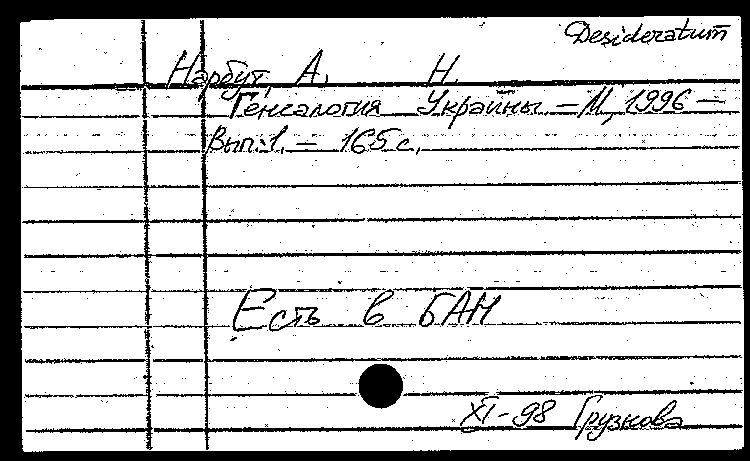 Desideratum
Нарбут, А. Н.
Генеалогия Украины – М, 1996 –
Вып. 1. – 165 с.
Есть в БАН
XI-98 Грузнова